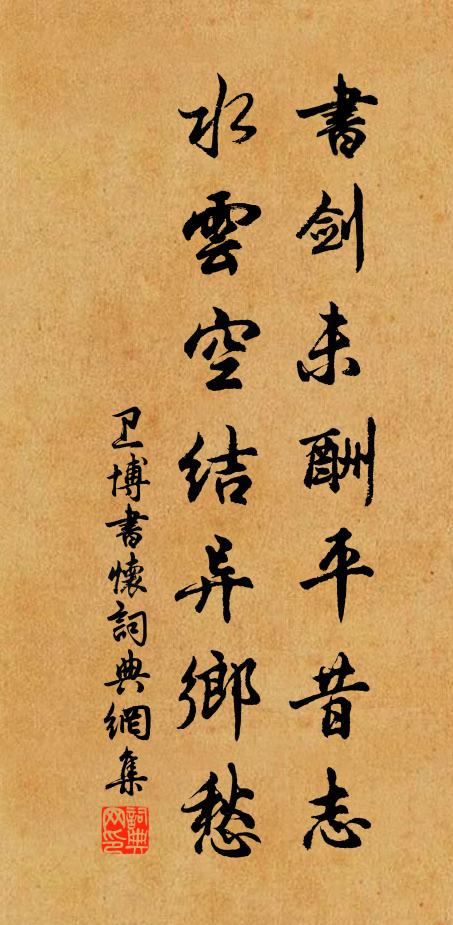 書劍未酬平昔志
水雲空結异鄉愁
卫博書懷詞典網集
詞典网印